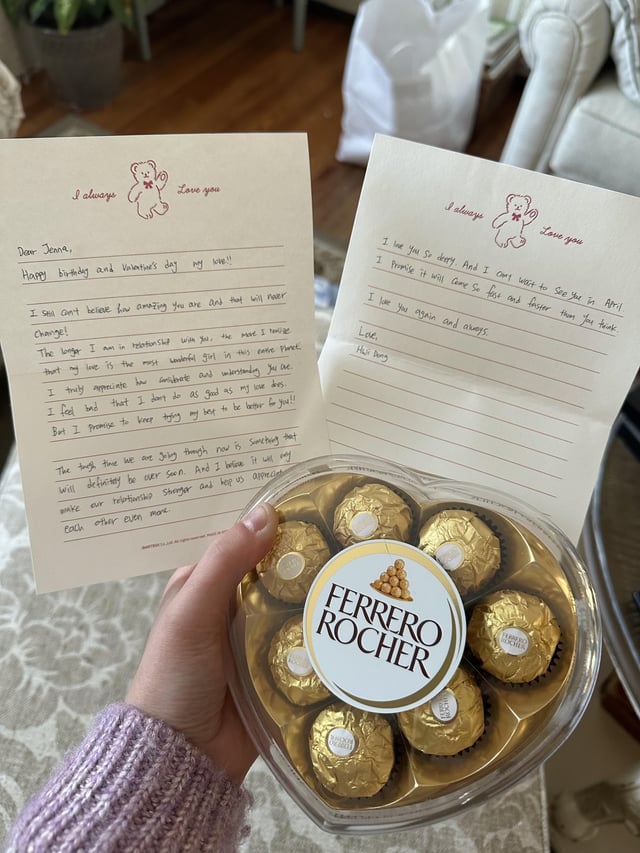 I always Love you
Dear Jenna,
Happy birthday and Valentine's day my love!!
I still can't believe how amazing you are and that will never
change!
The longer I am in relationship with you, the more I realize
that my love is the most wonderful girl in this entire planet.
I truly appreciate how considerate and understanding you are.
I feel bad that I don't do as good as my love does.
But I promise to keep trying my best to be better for you!!
The tough time we are going through now is something that
will definitely be over soon. And I believe it will only
make our relationship stronger and help us appreciate
each other even more.
I always Love you
I love you so deeply. And I can't wait to see you in April
I promise it will come so fast and faster than you think.
I love you again and always.
Love,
FERRERO
ROCHER